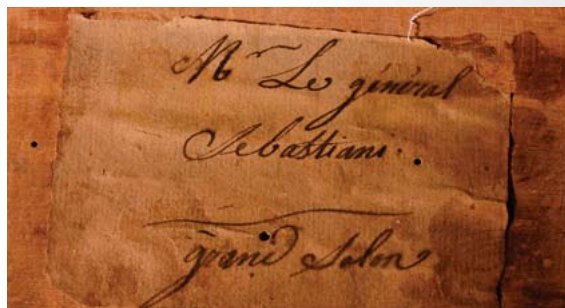 Mr Le général
Sebastiani.
grand Salon